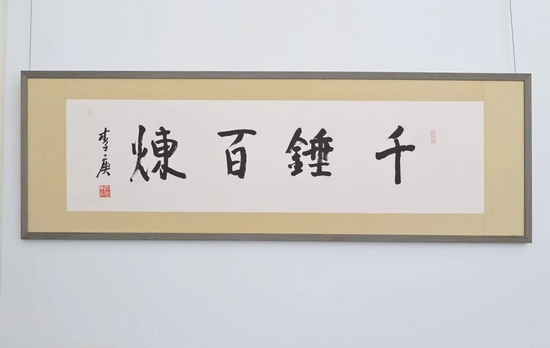 千錘百煉
李庚